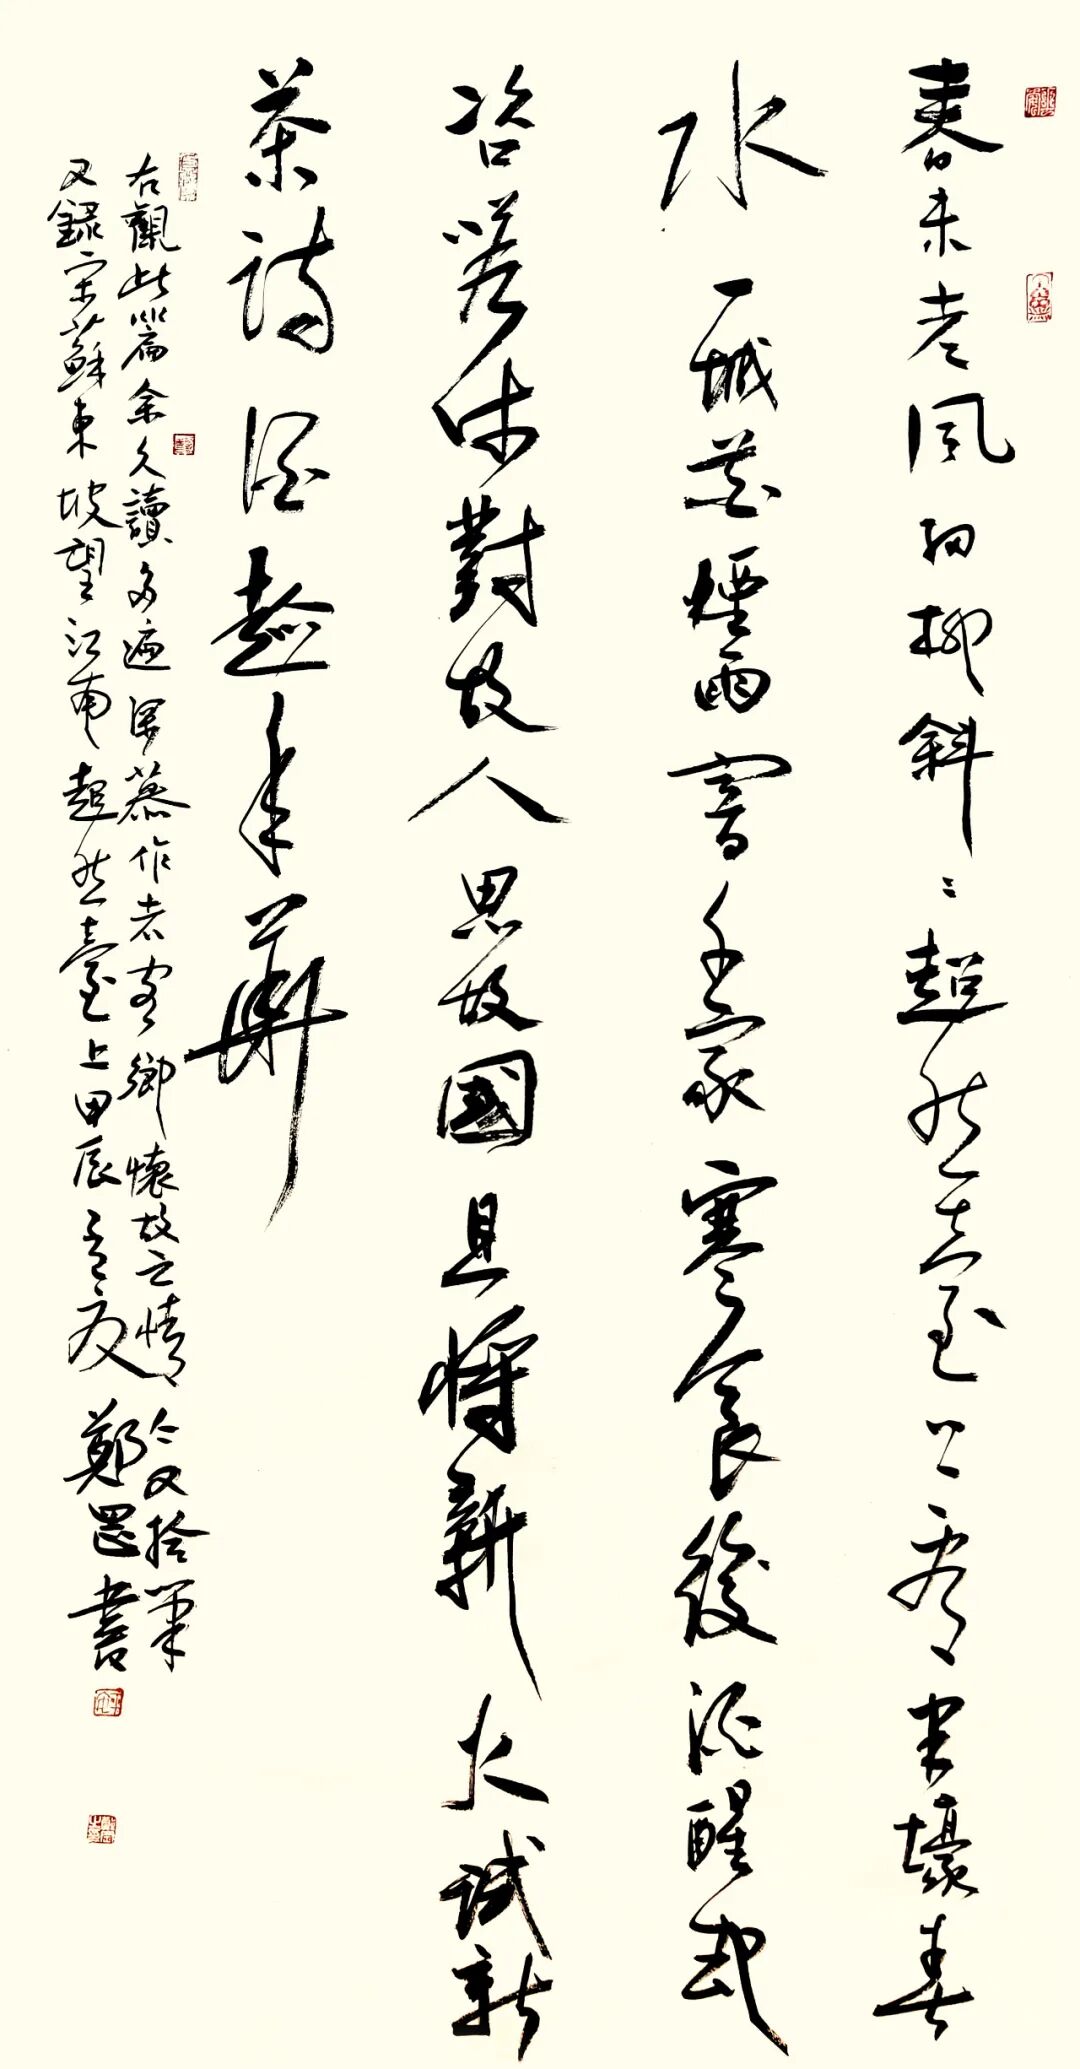 春未老風細柳斜々超然臺上看半壕春
水一城花煙雨暗千家寒食後酒醒却
咨嗟休對故人思故國且將新火試新
茶詩酒趁年華
右觀此篇余久讀多遍深慕作者鄉懷故之情今又拾筆
又錄宋蘇東坡望江南超然臺上甲辰夏鄭罡書